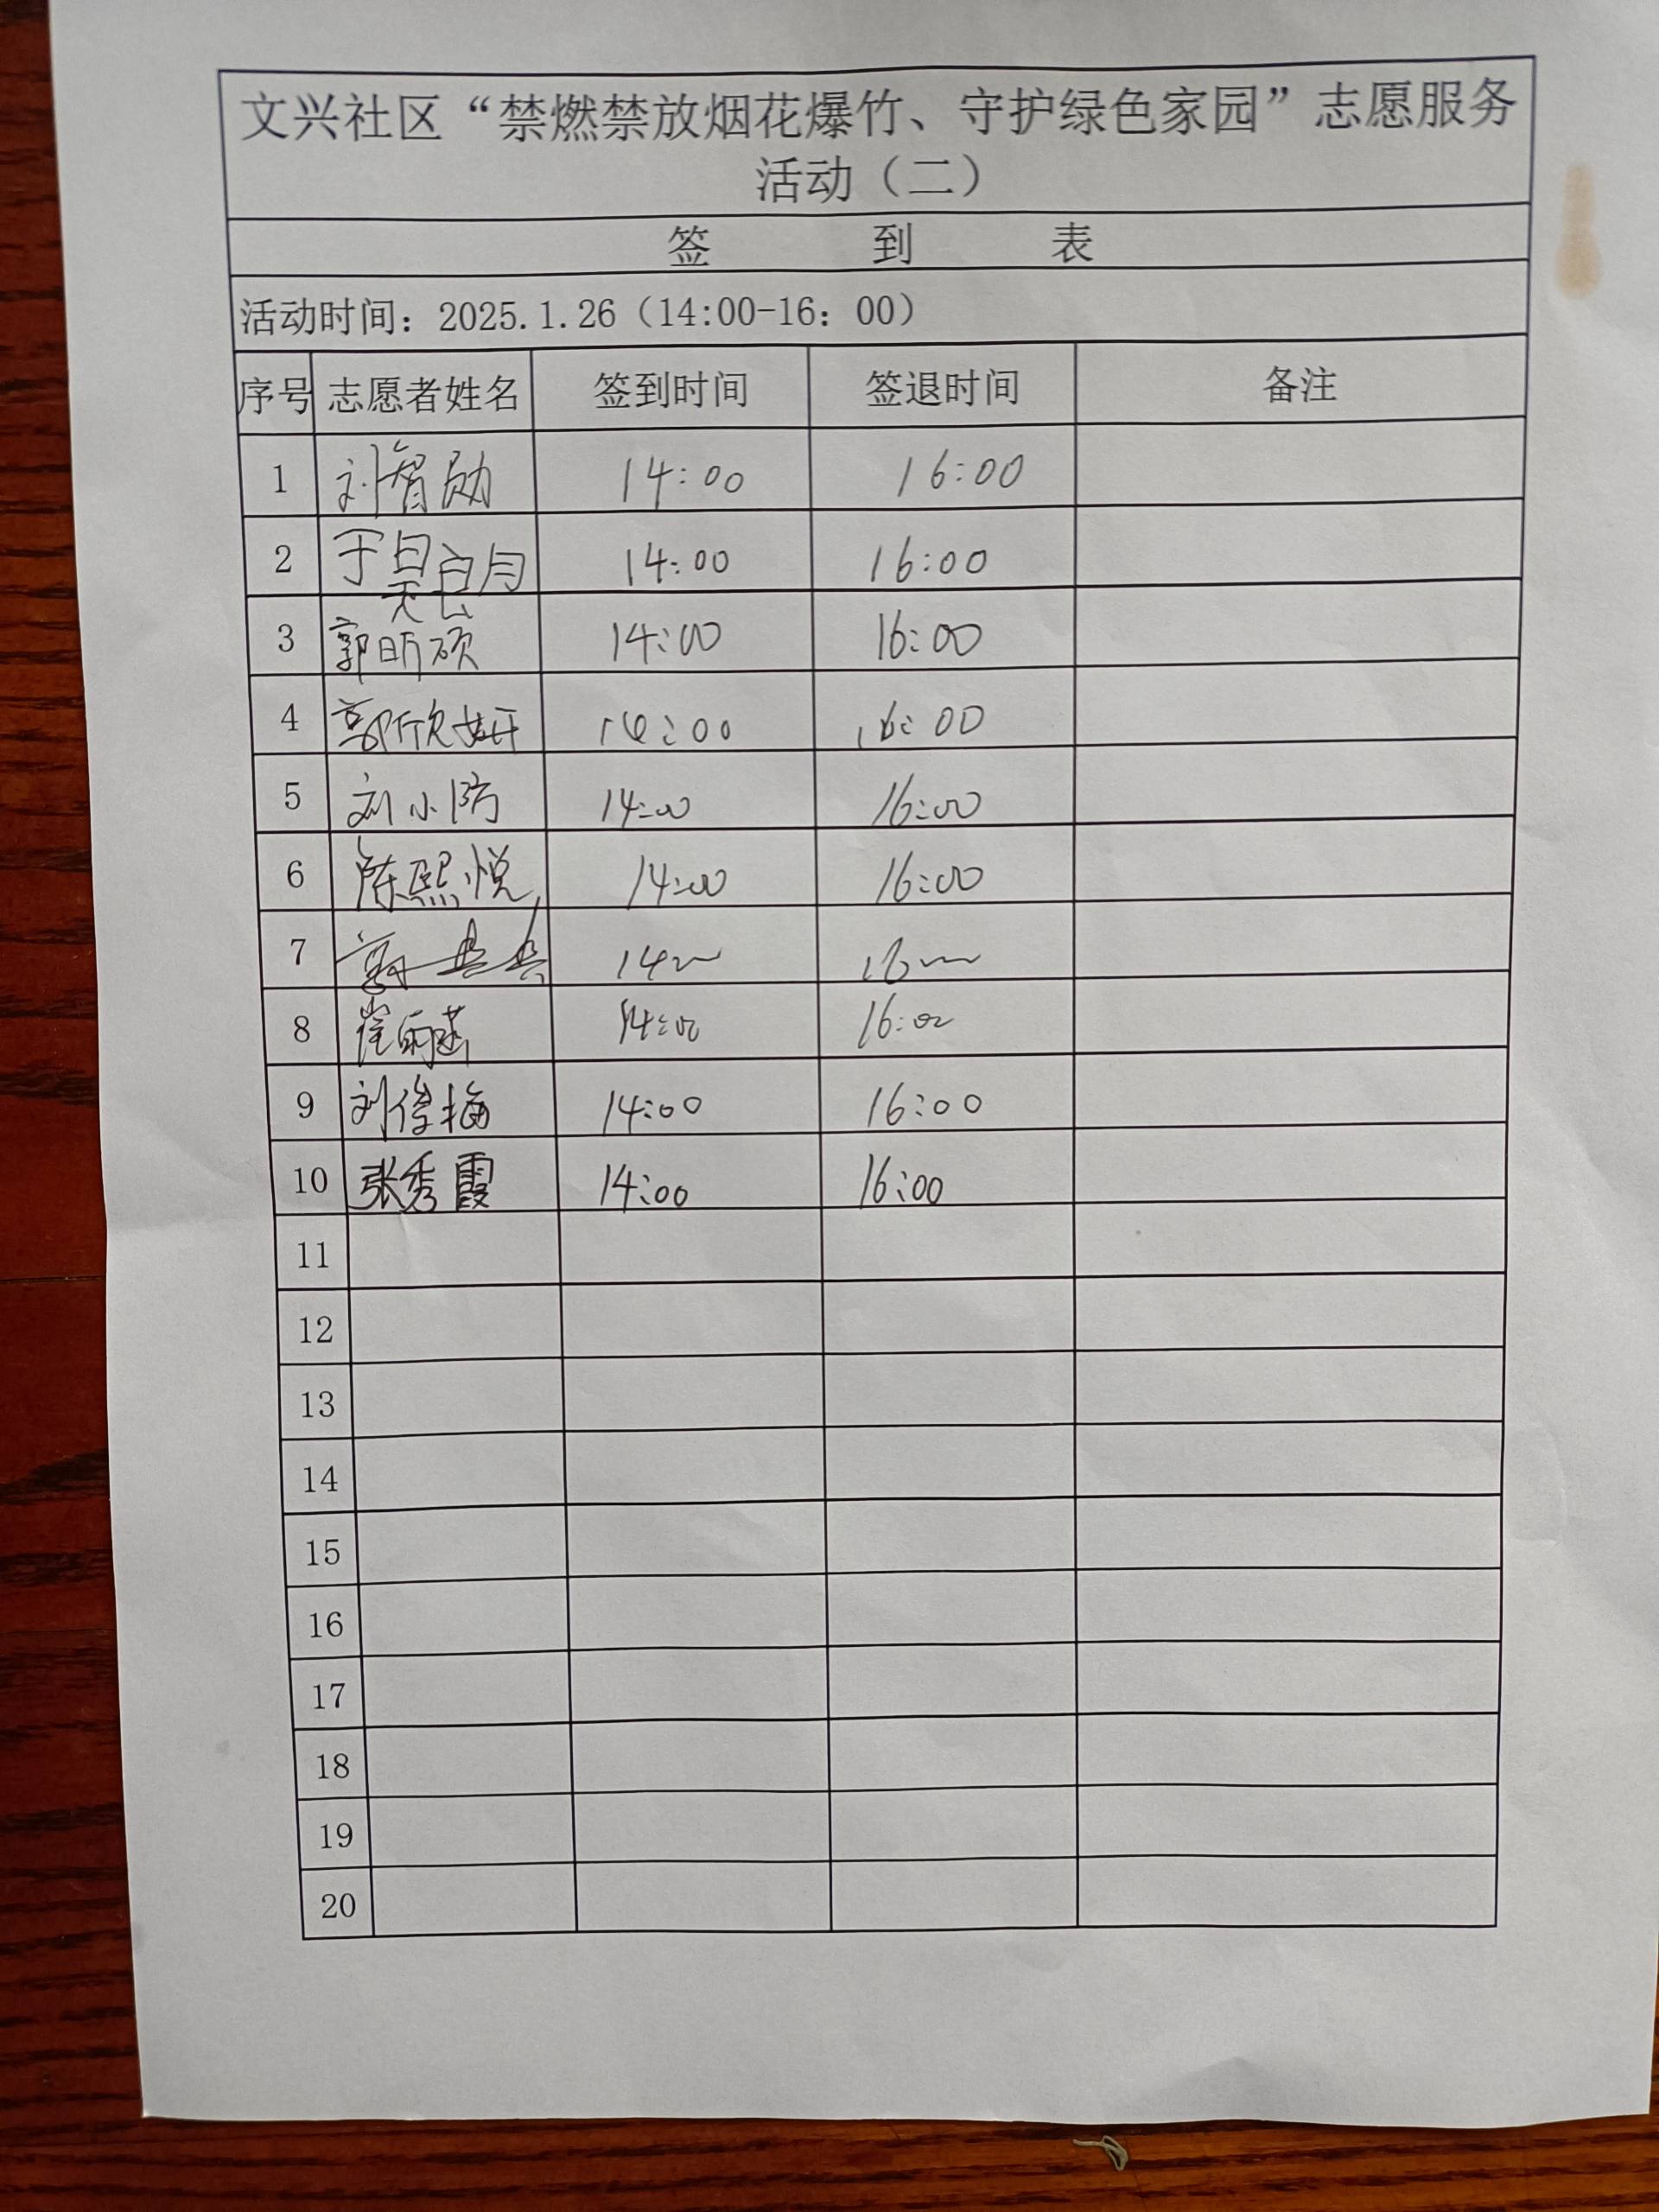 文兴社区“禁燃禁放烟花爆竹、守护绿色家园”志愿服务
活动（二）
签 到 表
活动时间：2025.1.26（14:00-16：00）
序号 志愿者姓名 签到时间 签退时间 备注
1 刘智勋 14:00 16:00
2 于 14:00 16:00
3 郭昕硕 14:00 16:00
4 郭欣妍 14:00 16:00
5 刘小防 14:00 16:00
6 陈熙悦 14:00 16:00
7 14 16
8 崔雨菡 14:00 16:00
9 刘俊梅 14:00 16:00
10 张秀霞 14:00 16:00
11
12
13
14
15
16
17
18
19
20